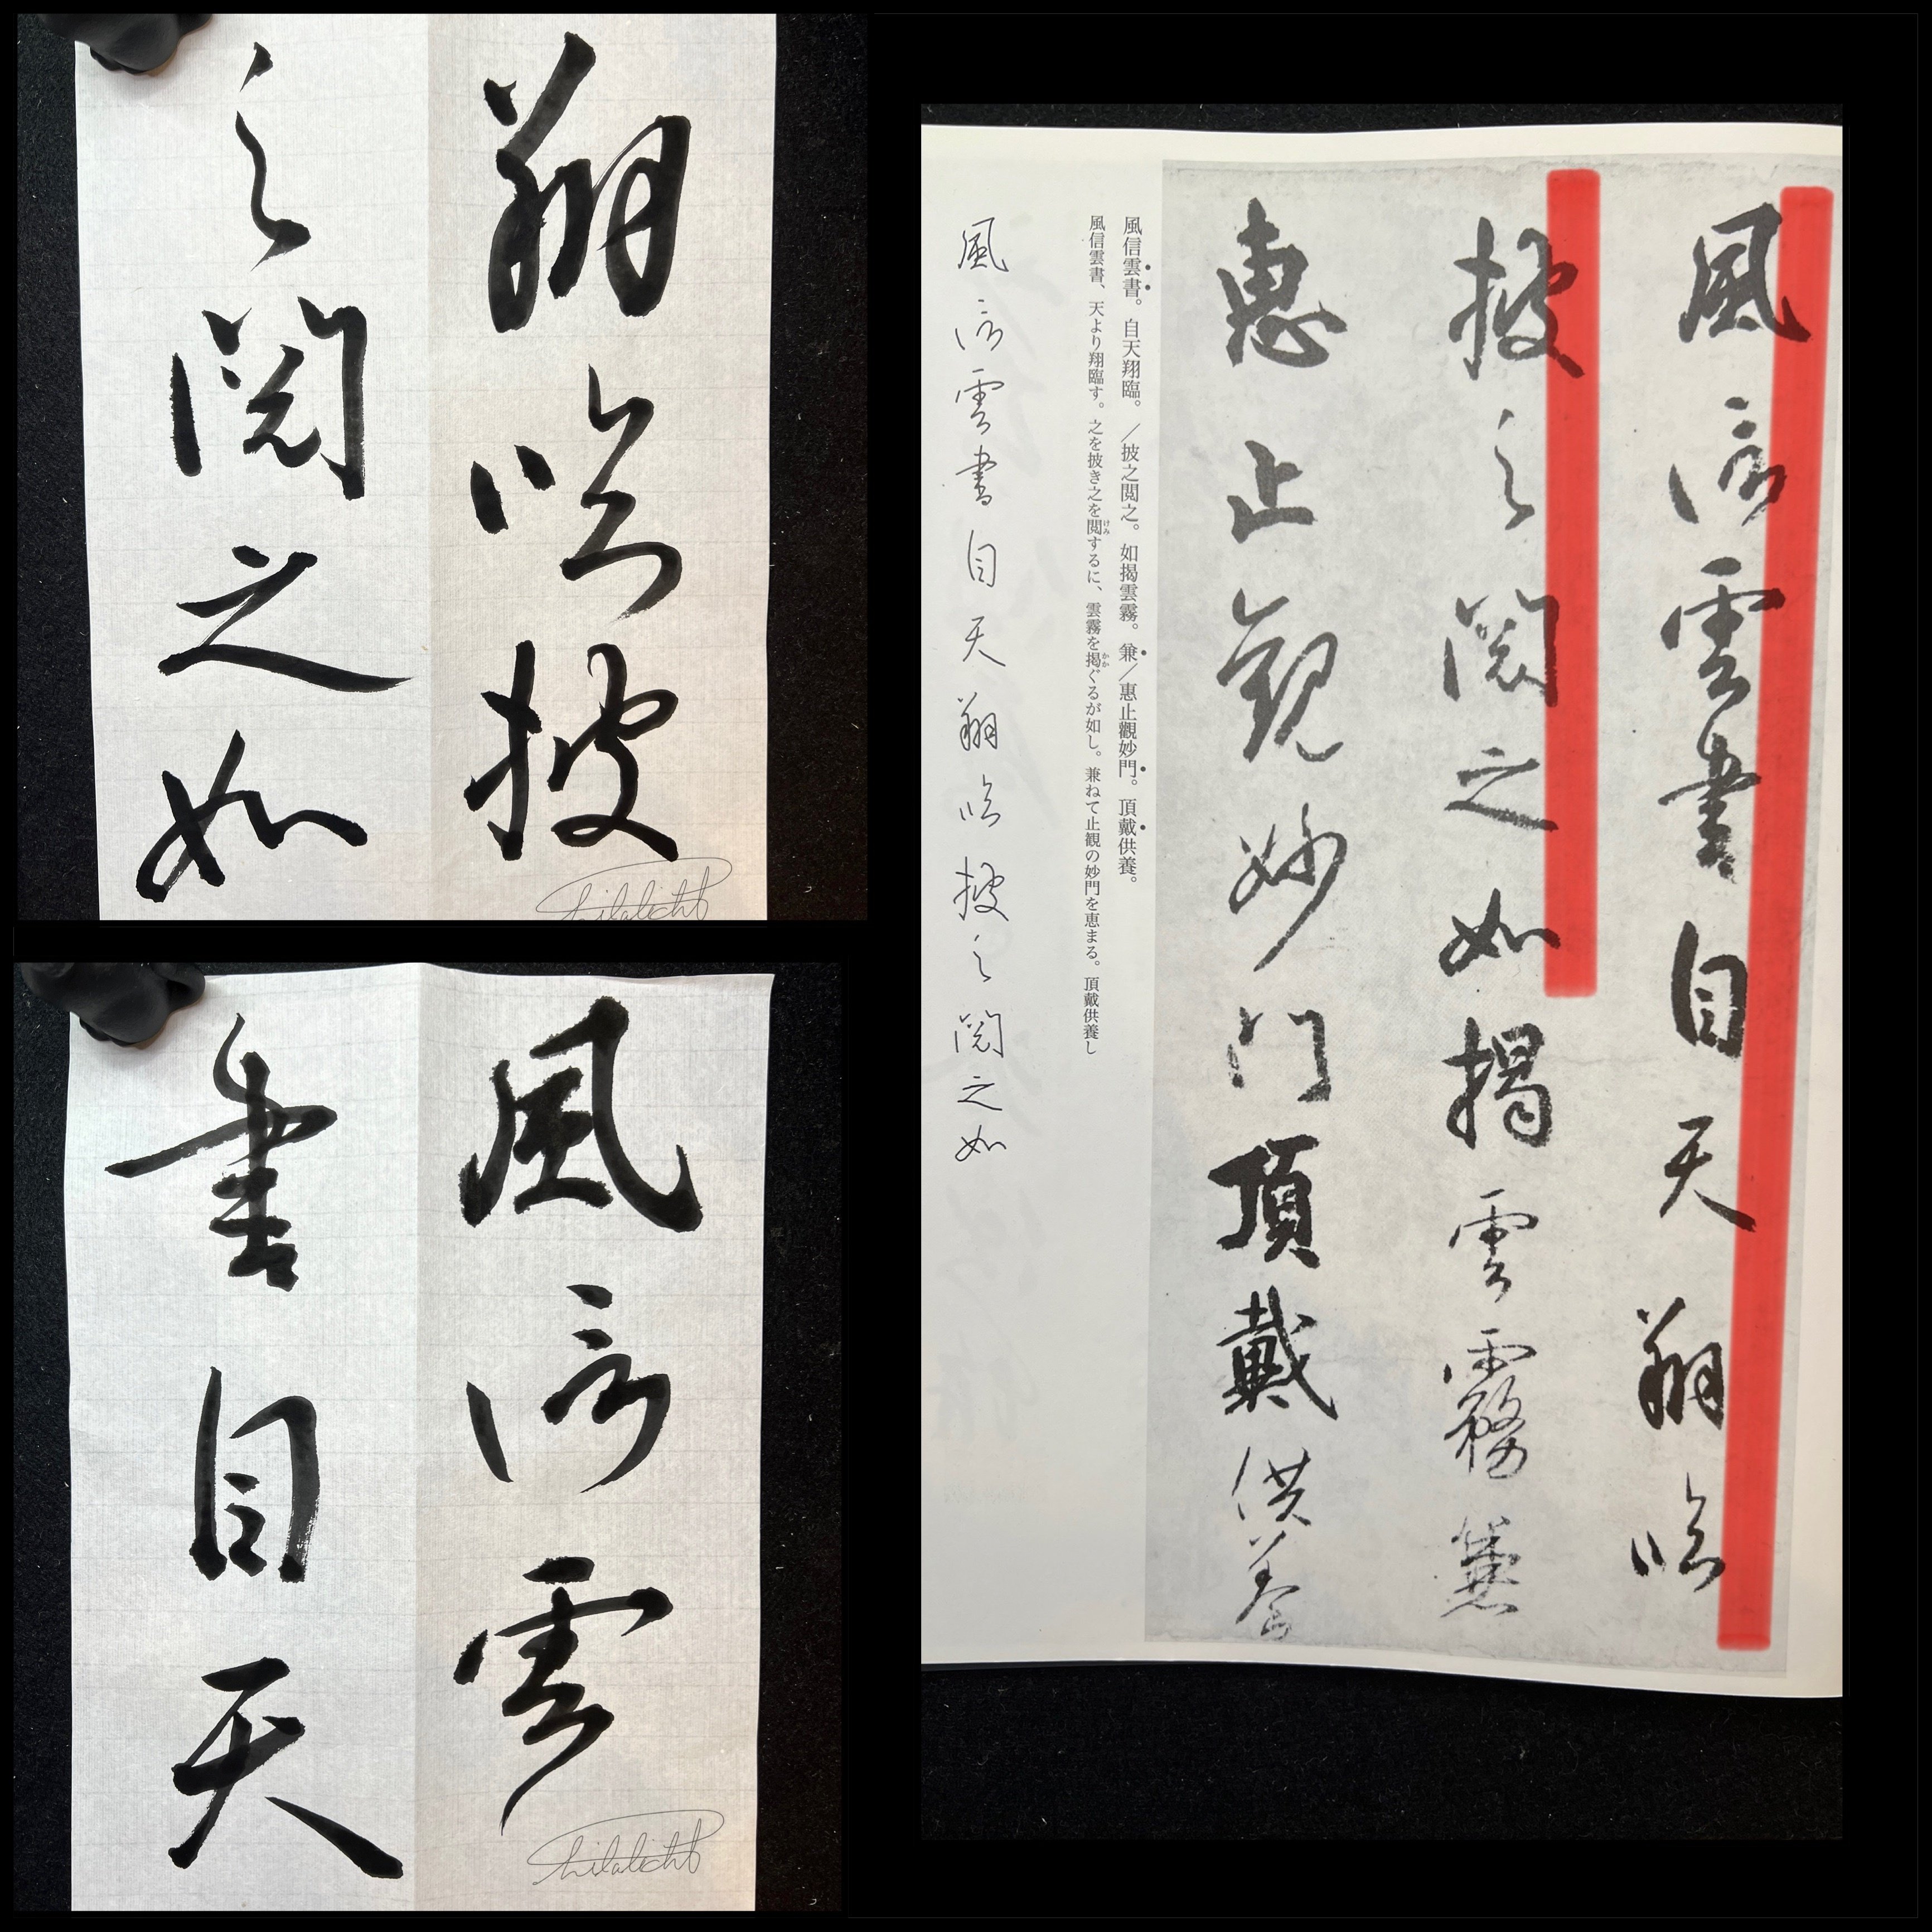 翔臨披
之閲之如
風信雲
書自天
風信雲書自天翔臨
披之閲之如揭雲霧兼
惠止觀妙門頂戴供養
風信雲書。自天翔臨。／披之閲之。如揭雲霧。兼／惠止觀妙門。頂戴供養。
風信雲書、天より翔臨す。之を披き之を閲するに、雲霧を揭ぐるが如し。兼ねて止観の妙門を恵まる。頂戴供養し
けみ
かか
風信雲書自天翔臨披之閲之如